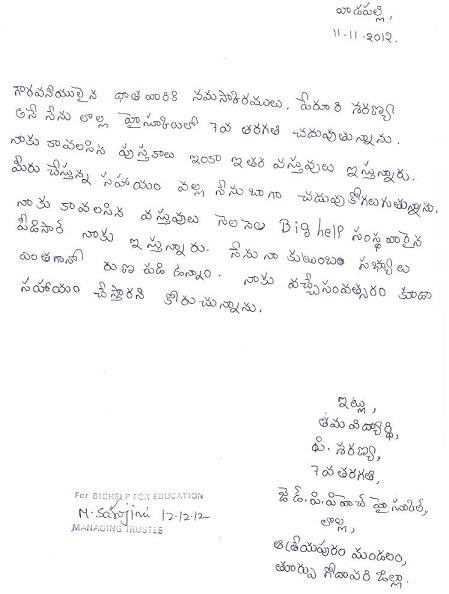 వాడపల్లి,
11-11-2012.
గౌరవనీయులైన దాత వారికి నమస్కారములు. పేరూరి శరణ్య
అనే నేను లొల్ల హైస్కూలులో 7వ తరగతి చదువుతున్నాను.
నాకు కావలసిన పుస్తకాలు ఇంకా ఇతర వస్తువులు ఇస్తున్నారు.
మీరు చేస్తున్న సహాయం వల్ల నేను బాగా చదువుకోగలుగుతున్నాను.
నాకు కావలసిన వస్తువులు నెలనెల Big help సంస్థ వారైన
పిడిసార్ నాకు ఇస్తున్నారు. నేను నా కుటుంబ సభ్యులు
ఎంతగానో రుణ పడి ఉన్నాం. నాకు వచ్చే సంవత్సరం కూడా
సహాయం చేస్తారని కోరుచున్నాను.
ఇట్లు,
తమ విద్యార్థి,
పి. శరణ్య,
7వ తరగతి,
జెడ్.పి.పి.హెచ్ హై స్కూల్,
లొల్ల,
ఆత్రేయపురం మండలం,
తూర్పు గోదావరి జిల్లా.
For BIGHELP FOR EDUCATION
M. Sarojini 12-12-12
MANAGING TRUSTEE